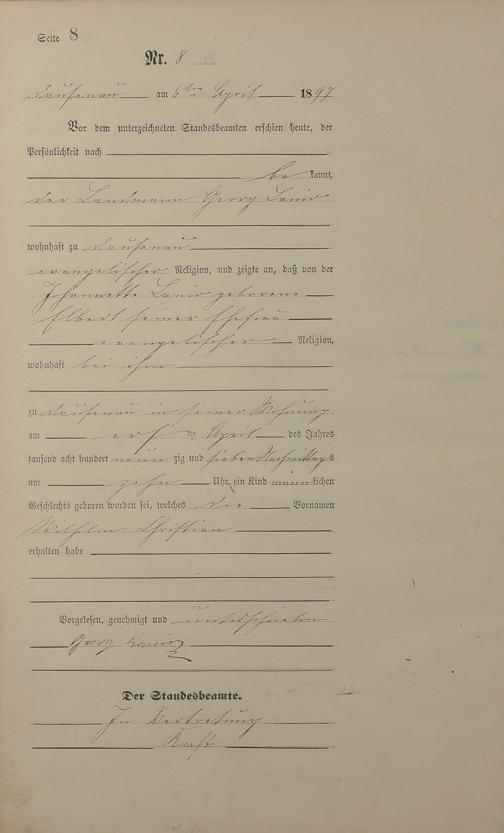 Seite 8
Nr. 8
Dausenau am 6ten April 1897
Vor dem unterzeichneten Standesbeamten erschien heute, der
Persönlichkeit nach
be kannt,
der Landmann Georg
wohnhaft zu Dausenau
evangelischer Religion, und zeigte an, daß von der
Johannette geborene
Elbert seiner Ehefrau
evangelischer Religion,
wohnhaft bei ihm
zu Dausenau in seiner Wohnung
am April des Jahres
tausend acht hundert neun zig und sieben Nachmittags
um zehn Uhr, ein Kind männlichen
Geschlechts geboren worden sei, welches die Vornamen
Wilhelm Christian
erhalten habe
Vorgelesen, genehmigt und unterschrieben
Georg
Der Standesbeamte.
In Vertretung
Kraft